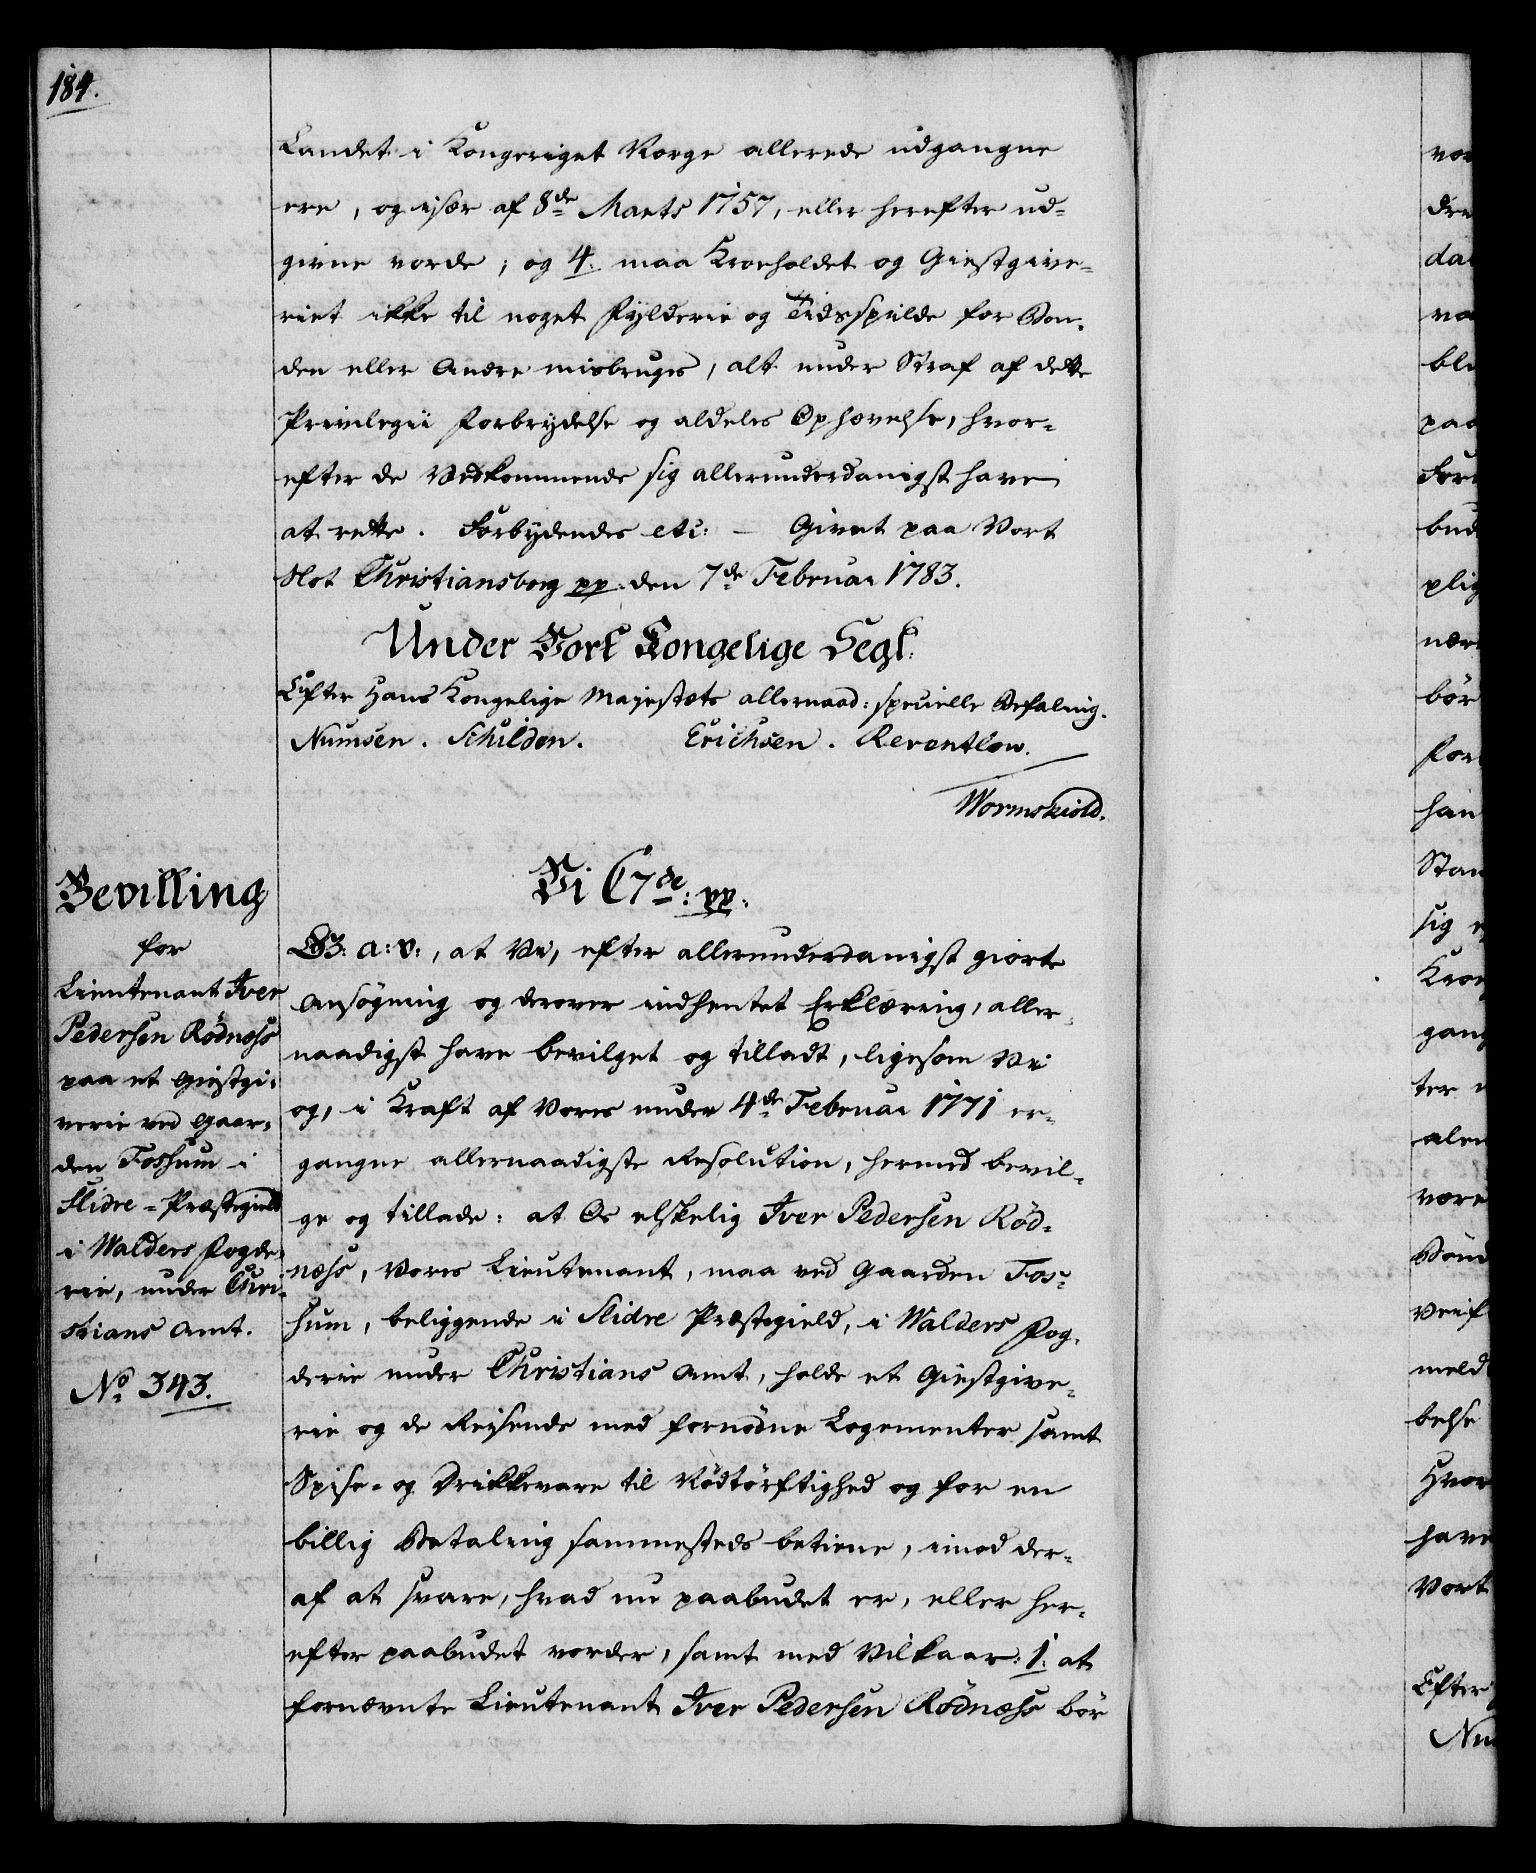 184.
Landet i Kongeriget Norge allerede udgangne
ere, og især af 8de Marts 1757, eller herefter ud-
givne vorde; og 4. maa Kroeholdet og Giestgive-
riet ikke til noget Fylderie og Tidsspilde for Bon-
den eller Andre misbruges, alt under Straf af dette
Privilegii Forbrydelse og aldeles Ophævelse, hvor-
efter de Vedkommende sig allerunderdanigst have
at rette. Forbydendes etc: — Givet paa Vort
Slot Christiansborg pp. den 7de Februar 1783.
Under Vort Kongelige Segl.
Efter Hans Kongelige Majestæts allernaad: specielle Befaling.
Numsen. Schilden. Erichsen. Reventlow.
Wormskiold.
Bevilling
for
Lieutenant Iver
Pedersen Rödnæss
paa et Giestgi-
verie ved Gaar-
den Fosshum i
Slidre-Præstegield
i Walders Fogde-
rie, under Chri-
stians Amt.
No 343.
Vi C7de: pp:
G: a: v:, at Vi, efter allerunderdanigst giorte
Ansögning og derover indhentet Erklæring, aller-
naadigst have bevilget og tilladt, ligesom Vi
og, i Kraft af Vores under 4de Februar 1771 er-
gangne allernaadigste Resolution, hermed bevil-
ge og tillade: at Os elskelig Iver Pedersen Röd-
næss, Vores Lieutenant, maa ved Gaarden Fos-
hum, beliggende i Slidre Præstegield, i Walders Fog-
derie under Christians Amt, holde et Giestgive-
rie og de Reisende med fornödne Logementer samt
Spise- og Drikkevare til Nödtörftighed og for en
billig Betaling sammesteds betiene, imod der-
af at svare, hvad nu paabudet er, eller her-
efter paabudet vorder, samt med Vilkaar: 1. at
fornævnte Lieutenant Iver Pedersen Rödnæss bör